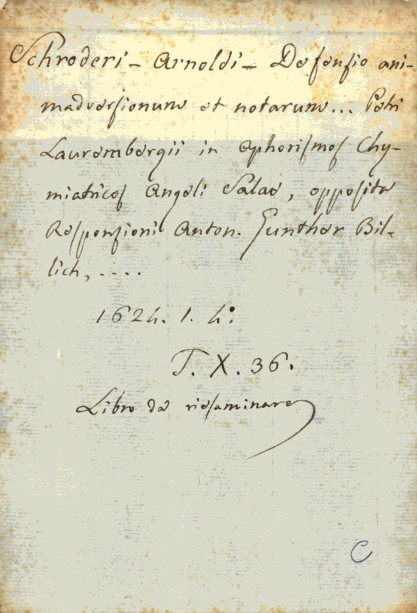 Schroderi - Arnoldi - Defensio ani-
madversionum et notarum... Petri
Laurembergii in Aphorismos Chy-
miatricos Angeli Salae, opposita
Responsioni Anton. Gunther Bil-
lich, ....
1624. 1. 4:
T. X. 36.
Libro da riesaminare
C